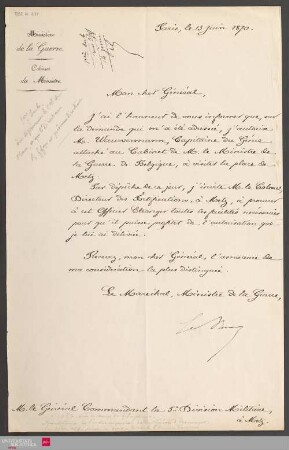 Ministère
de la Guerre.
Cabinet
du Ministre
Paris, le 13 juin 1870.
Mon cher Général,
J'ai l'honneur de vous informer que, sur
la demande qui m'a été adressée, j'autorise
M. Wauwermann, Capitaine du Génie
attaché au Cabinet de M. le Ministre de
la Guerre de Belgique, à visiter la place de
Metz.
Par dépêche de ce jour, j'invite M. le Colonel
Directeur des Fortifications, à Metz, à procurer
à cet Officier Etranger toutes les facilités nécessaires
pour qu'il puisse profiter de l'autorisation que
je lui ai délivrée.
Recevez, mon cher Général, l'assurance de
ma considération la plus distinguée.
Le Maréchal, Ministre de la Guerre,
M. le Général Commandant la 5e Division Militaire,
à Metz.